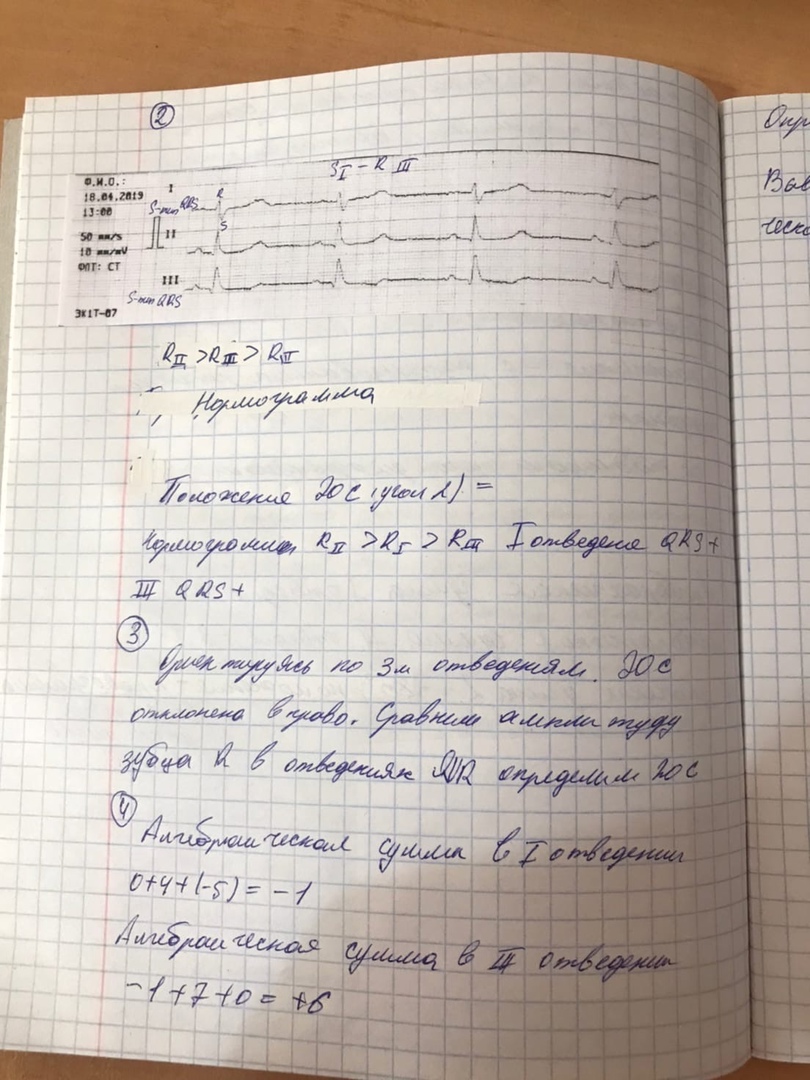 ②
S I - R III
Ф.И.О.:
18.04.2019
13:00
50 mm/s
10 mm/mV
ФПТ: СТ
ЭК1Т-07
I
R
S-тип QRS
II
S
III
S-тип QRS
R II > R III > R II
Нормограмма
Положение ЭОС (угол α) =
Нормограмма R II > R I > R III I отведение QRS +
III QRS +
③
Ориентируясь по 3м отведениям. ЭОС
отклонена вправо. Сравним амплитуду
зубца R в отведениях AVR определим ЭОС
④
Алгебраическая сумма в I отведении
0+4+(-5) = -1
Алгебраическая сумма в III отведении
-1+7+0 = +6
Опр
Выв
ческо